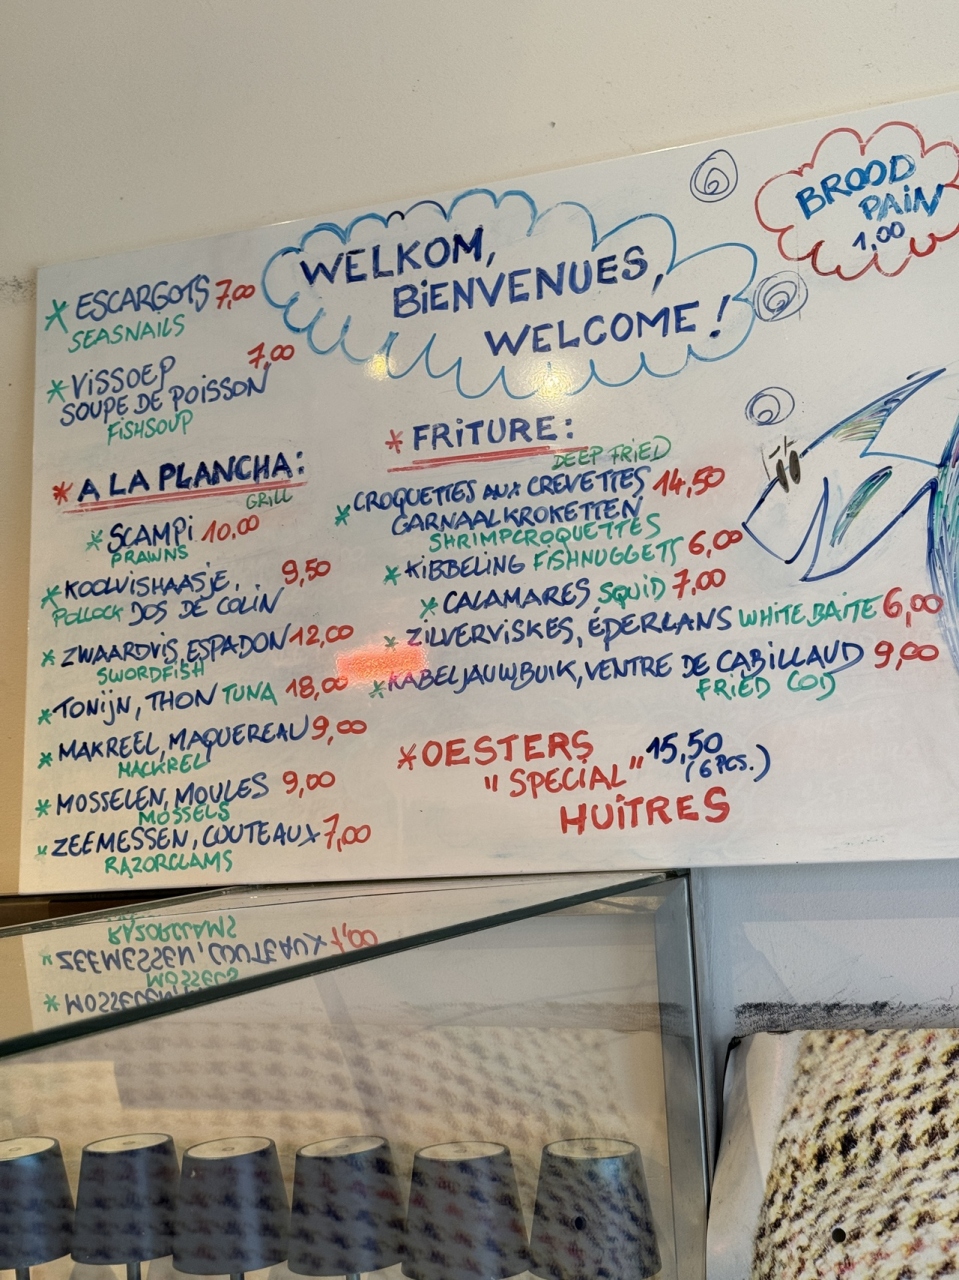 WELKOM,
BIENVENUES,
WELCOME!
BROOD
PAIN
1,00
* ESCARGOTS 7,00
SEASNAILS
* VISSOEP 7,00
SOUPE DE POISSON
FISHSOUP
* A LA PLANCHA:
GRILL
* SCAMPI 10,00
PRAWNS
* KOOLVISHAASJE, . 9,50
POLLOCK DOS DE COLIN
* ZWAARDVIS, ESPADON 12,00
SWORDFISH
* TONIJN, THON TUNA 18,00
* MAKREEL, MAQUEREAU 9,00
MACKREL
* MOSSELEN, MOULES 9,00
MOSSELS
* ZEEMESSEN, COUTEAUX 7,00
RAZORCLAMS
* FRITURE:
DEEP FRIED
* CROQUETTES AUX CREVETTES 14,50
GARNAALKROKETTEN
SHRIMPCROQUETTES
* KIBBELING FISHNUGGETS 6,00
* CALAMARES SQUID 7,00
* ZILVERVISKES, ÉPERLANS WHITEBAITE 6,00
* KABELJAUWBUIK, VENTRE DE CABILLAUD 9,00
FRIED COD
* OESTERS 15,50
"SPECIAL" (6 PCS.)
HUITRES